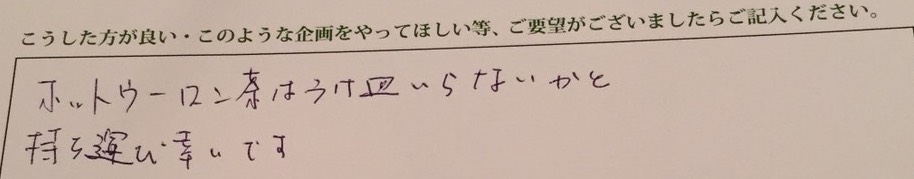 こうした方が良い・このような企画をやってほしい等、ご要望がございましたらご記入ください。
ホットウーロン茶はうけ皿いらないかと
持ち運び幸いです